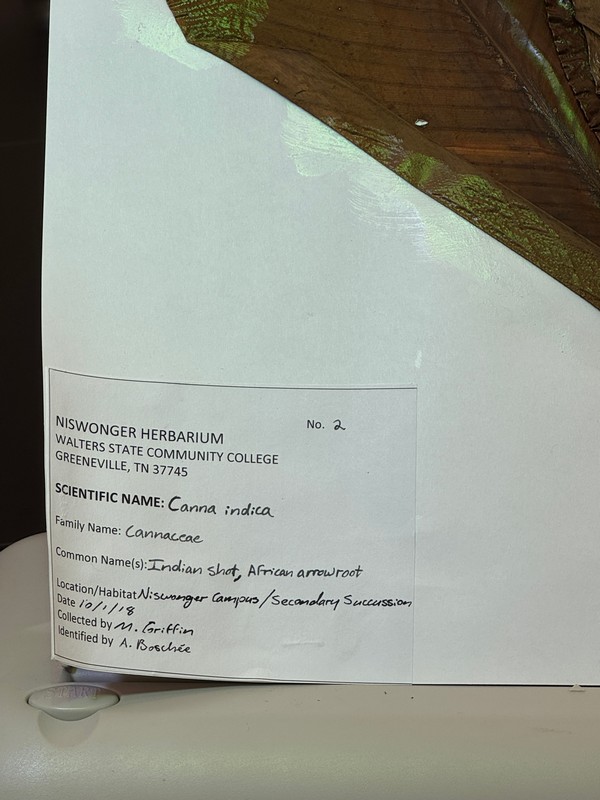 NISWONGER HERBARIUM
No. 2
WALTERS STATE COMMUNITY COLLEGE
GREENEVILLE, TN 37745
SCIENTIFIC NAME: Canna indica
Family Name: Cannaceae
Common Name(s): Indian shot, African arrowroot
Location/Habitat Niswonger Campus/Secondary Succussion
Date 10/1/18
Collected by M. Griffin
Identified by A. Boschée